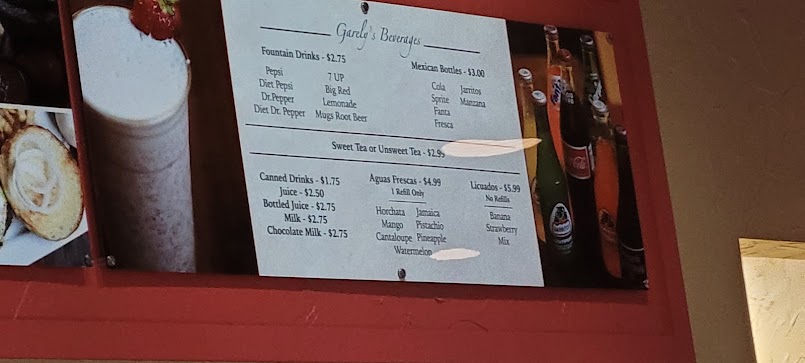 Garely's Beverages
Fountain Drinks - $2.75
Pepsi
Diet Pepsi
Dr.Pepper
Diet Dr. Pepper
7 UP
Big Red
Lemonade
Mugs Root Beer
Mexican Bottles - $3.00
Cola
Sprite
Fanta
Fresca
Jarritos
Manzana
Sweet Tea or Unsweet Tea - $2.99
Canned Drinks - $1.75
Juice - $2.50
Bottled Juice - $2.75
Milk - $2.75
Chocolate Milk - $2.75
Aguas Frescas - $4.99
1 Refill Only
Horchata Jamaica
Mango Pistachio
Cantaloupe Pineapple
Watermelon
Licuados - $5.99
No Refills
Banana
Strawberry
Mix